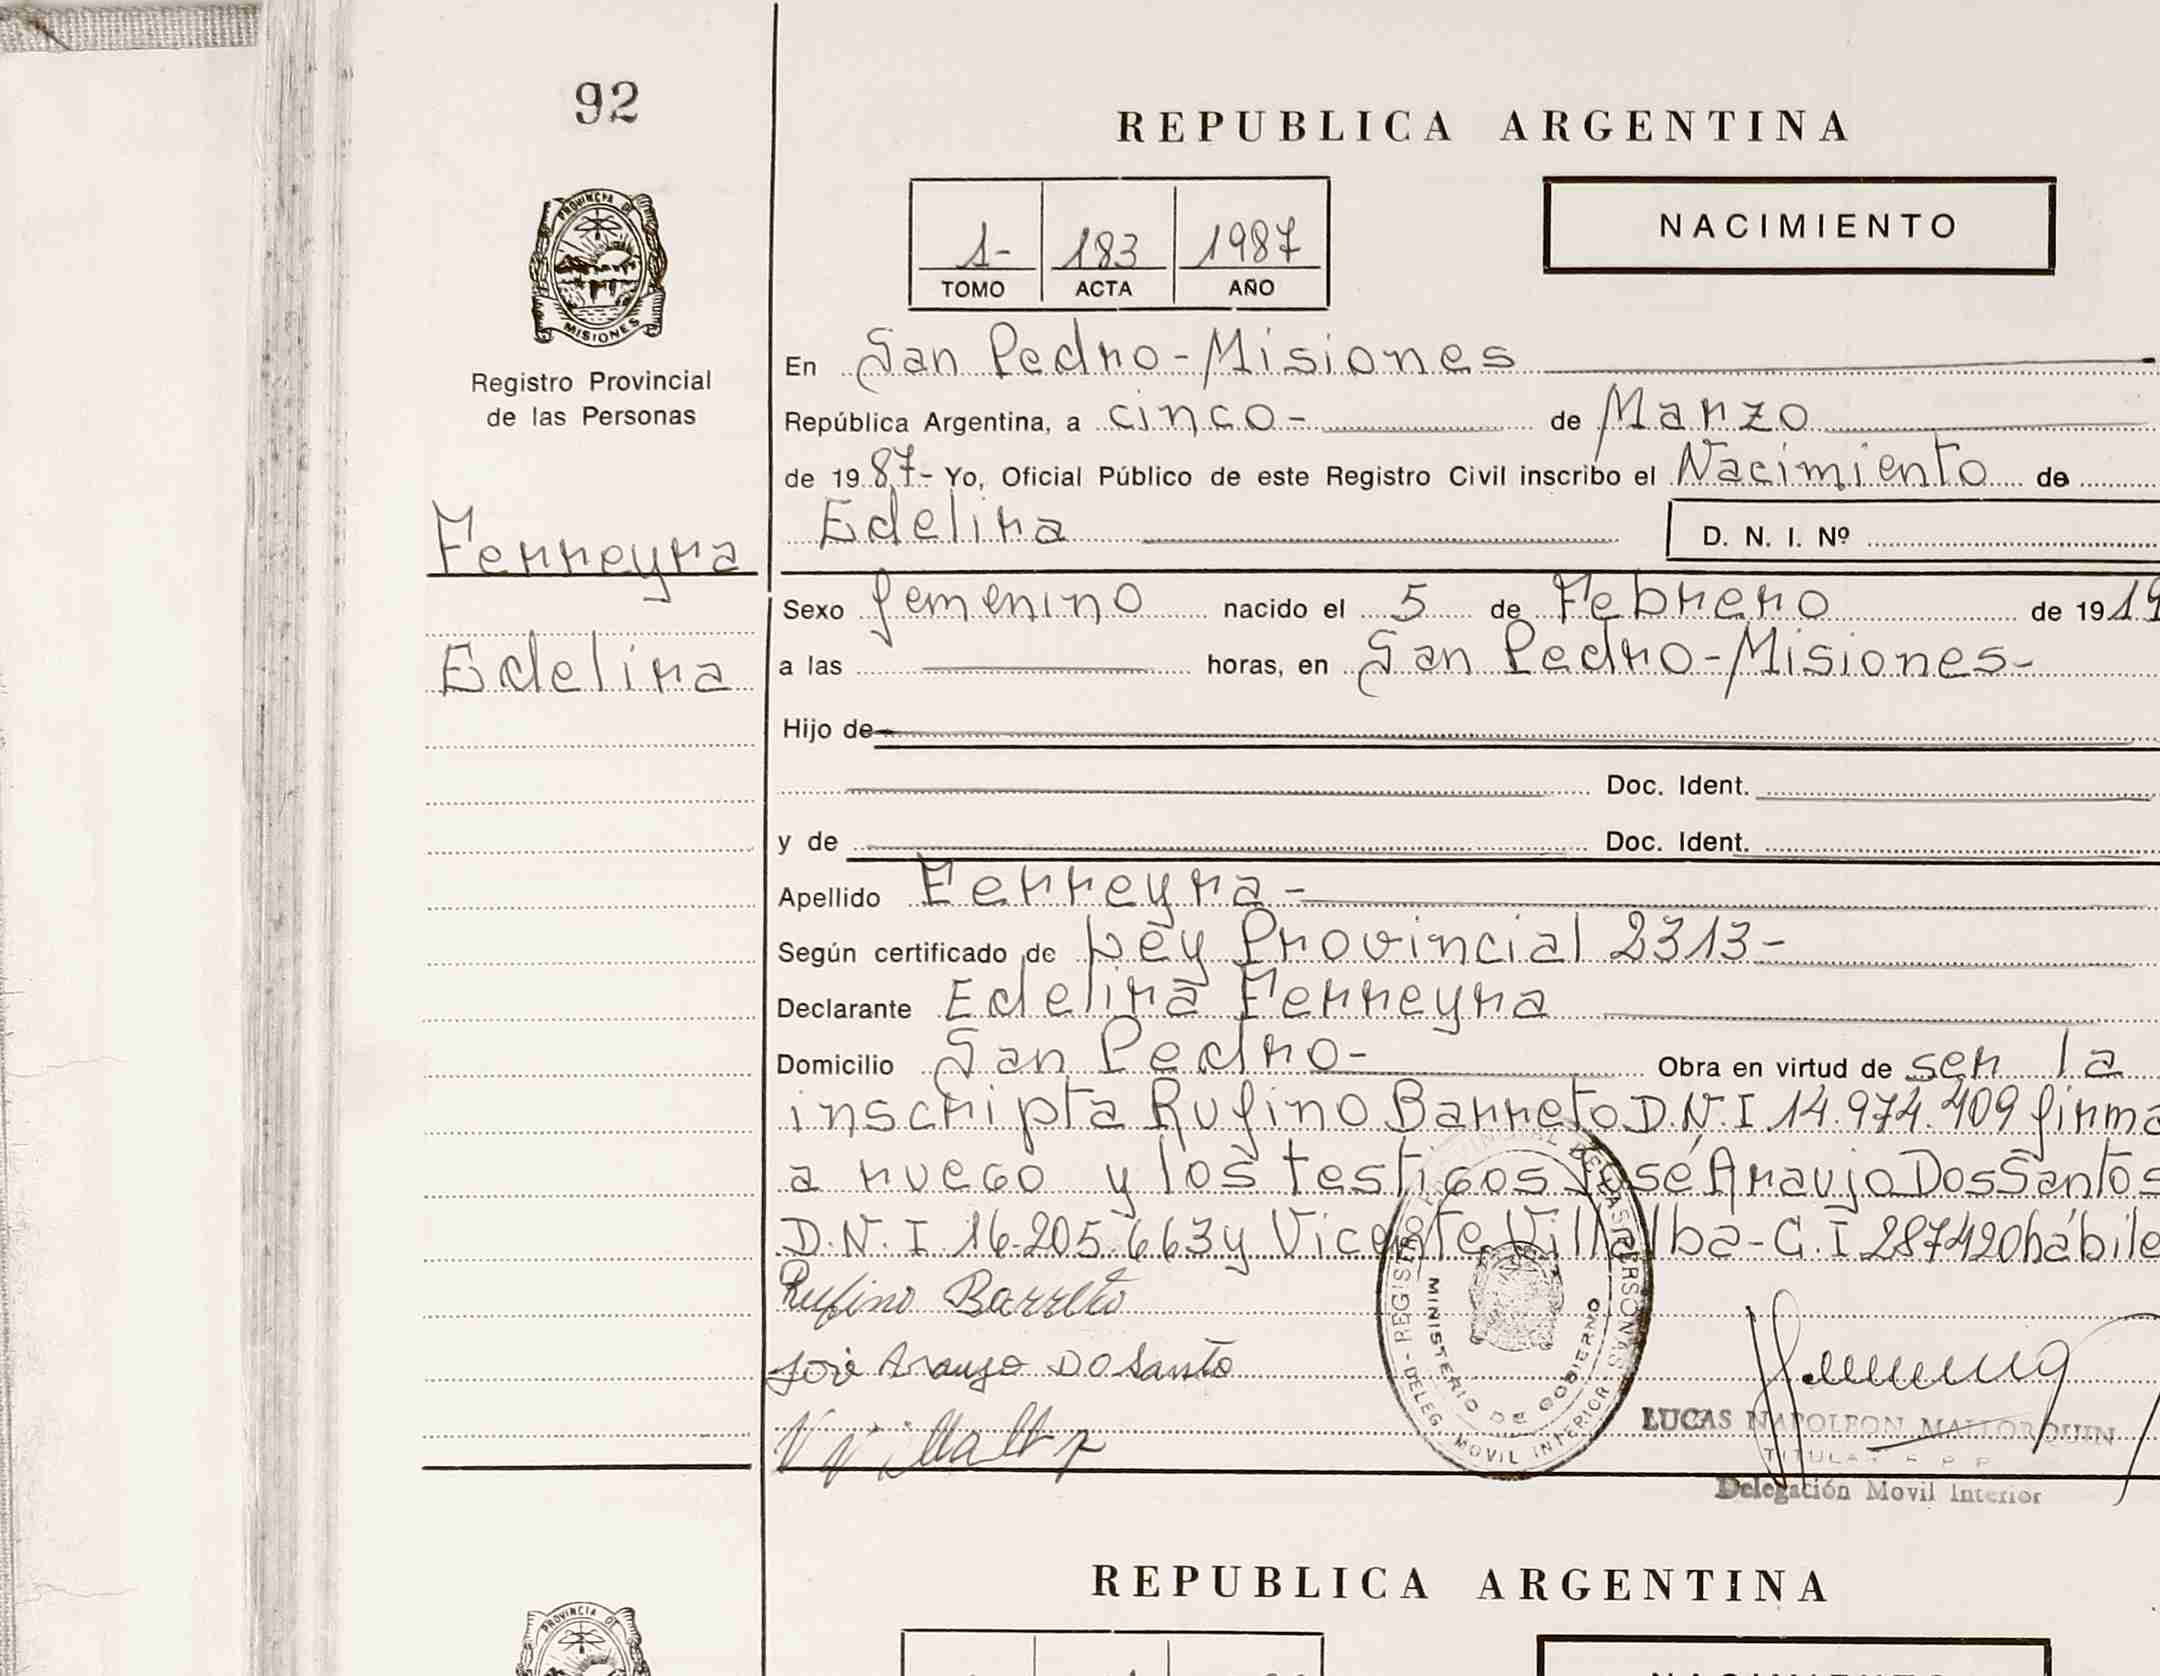 92
REPUBLICA ARGENTINA
PROVINCIA DE
MISIONES
NACIMIENTO
1- 183 1987
TOMO ACTA AÑO
Registro Provincial
de las Personas
En San Pedro - Misiones
República Argentina, a cinco - de Marzo
de 1987- Yo, Oficial Público de este Registro Civil inscribo el Nacimiento de
Edelira
D. N. I. Nº
Ferreyra
Sexo femenino nacido el 5 de Febrero de 1919
Edelira
a las horas, en San Pedro - Misiones -
Hijo de
Doc. Ident.
y de Doc. Ident.
Apellido Ferreyra -
Según certificado de Ley Provincial 2313 -
Declarante Edelira Ferreyra
Domicilio San Pedro - Obra en virtud de ser la
inscripta Rufino Barreto D.N.I 14.974.409 firma
a ruego y los testigos José Araujo Dos Santos
D.N.I 16.205.663 y Vicente Villalba - C.I 287420 hábile
Rufino Barreto
José Araujo DO Santo
REGISTRO PROVINCIAL DE LAS PERSONAS - DELEG. MOVIL INTERIOR -
MINISTERIO DE GOBIERNO
LUCAS NAPOLEON MALLORQUIN
TITULAR
Delegación Movil Interior
REPUBLICA ARGENTINA
PROVINCIA DE